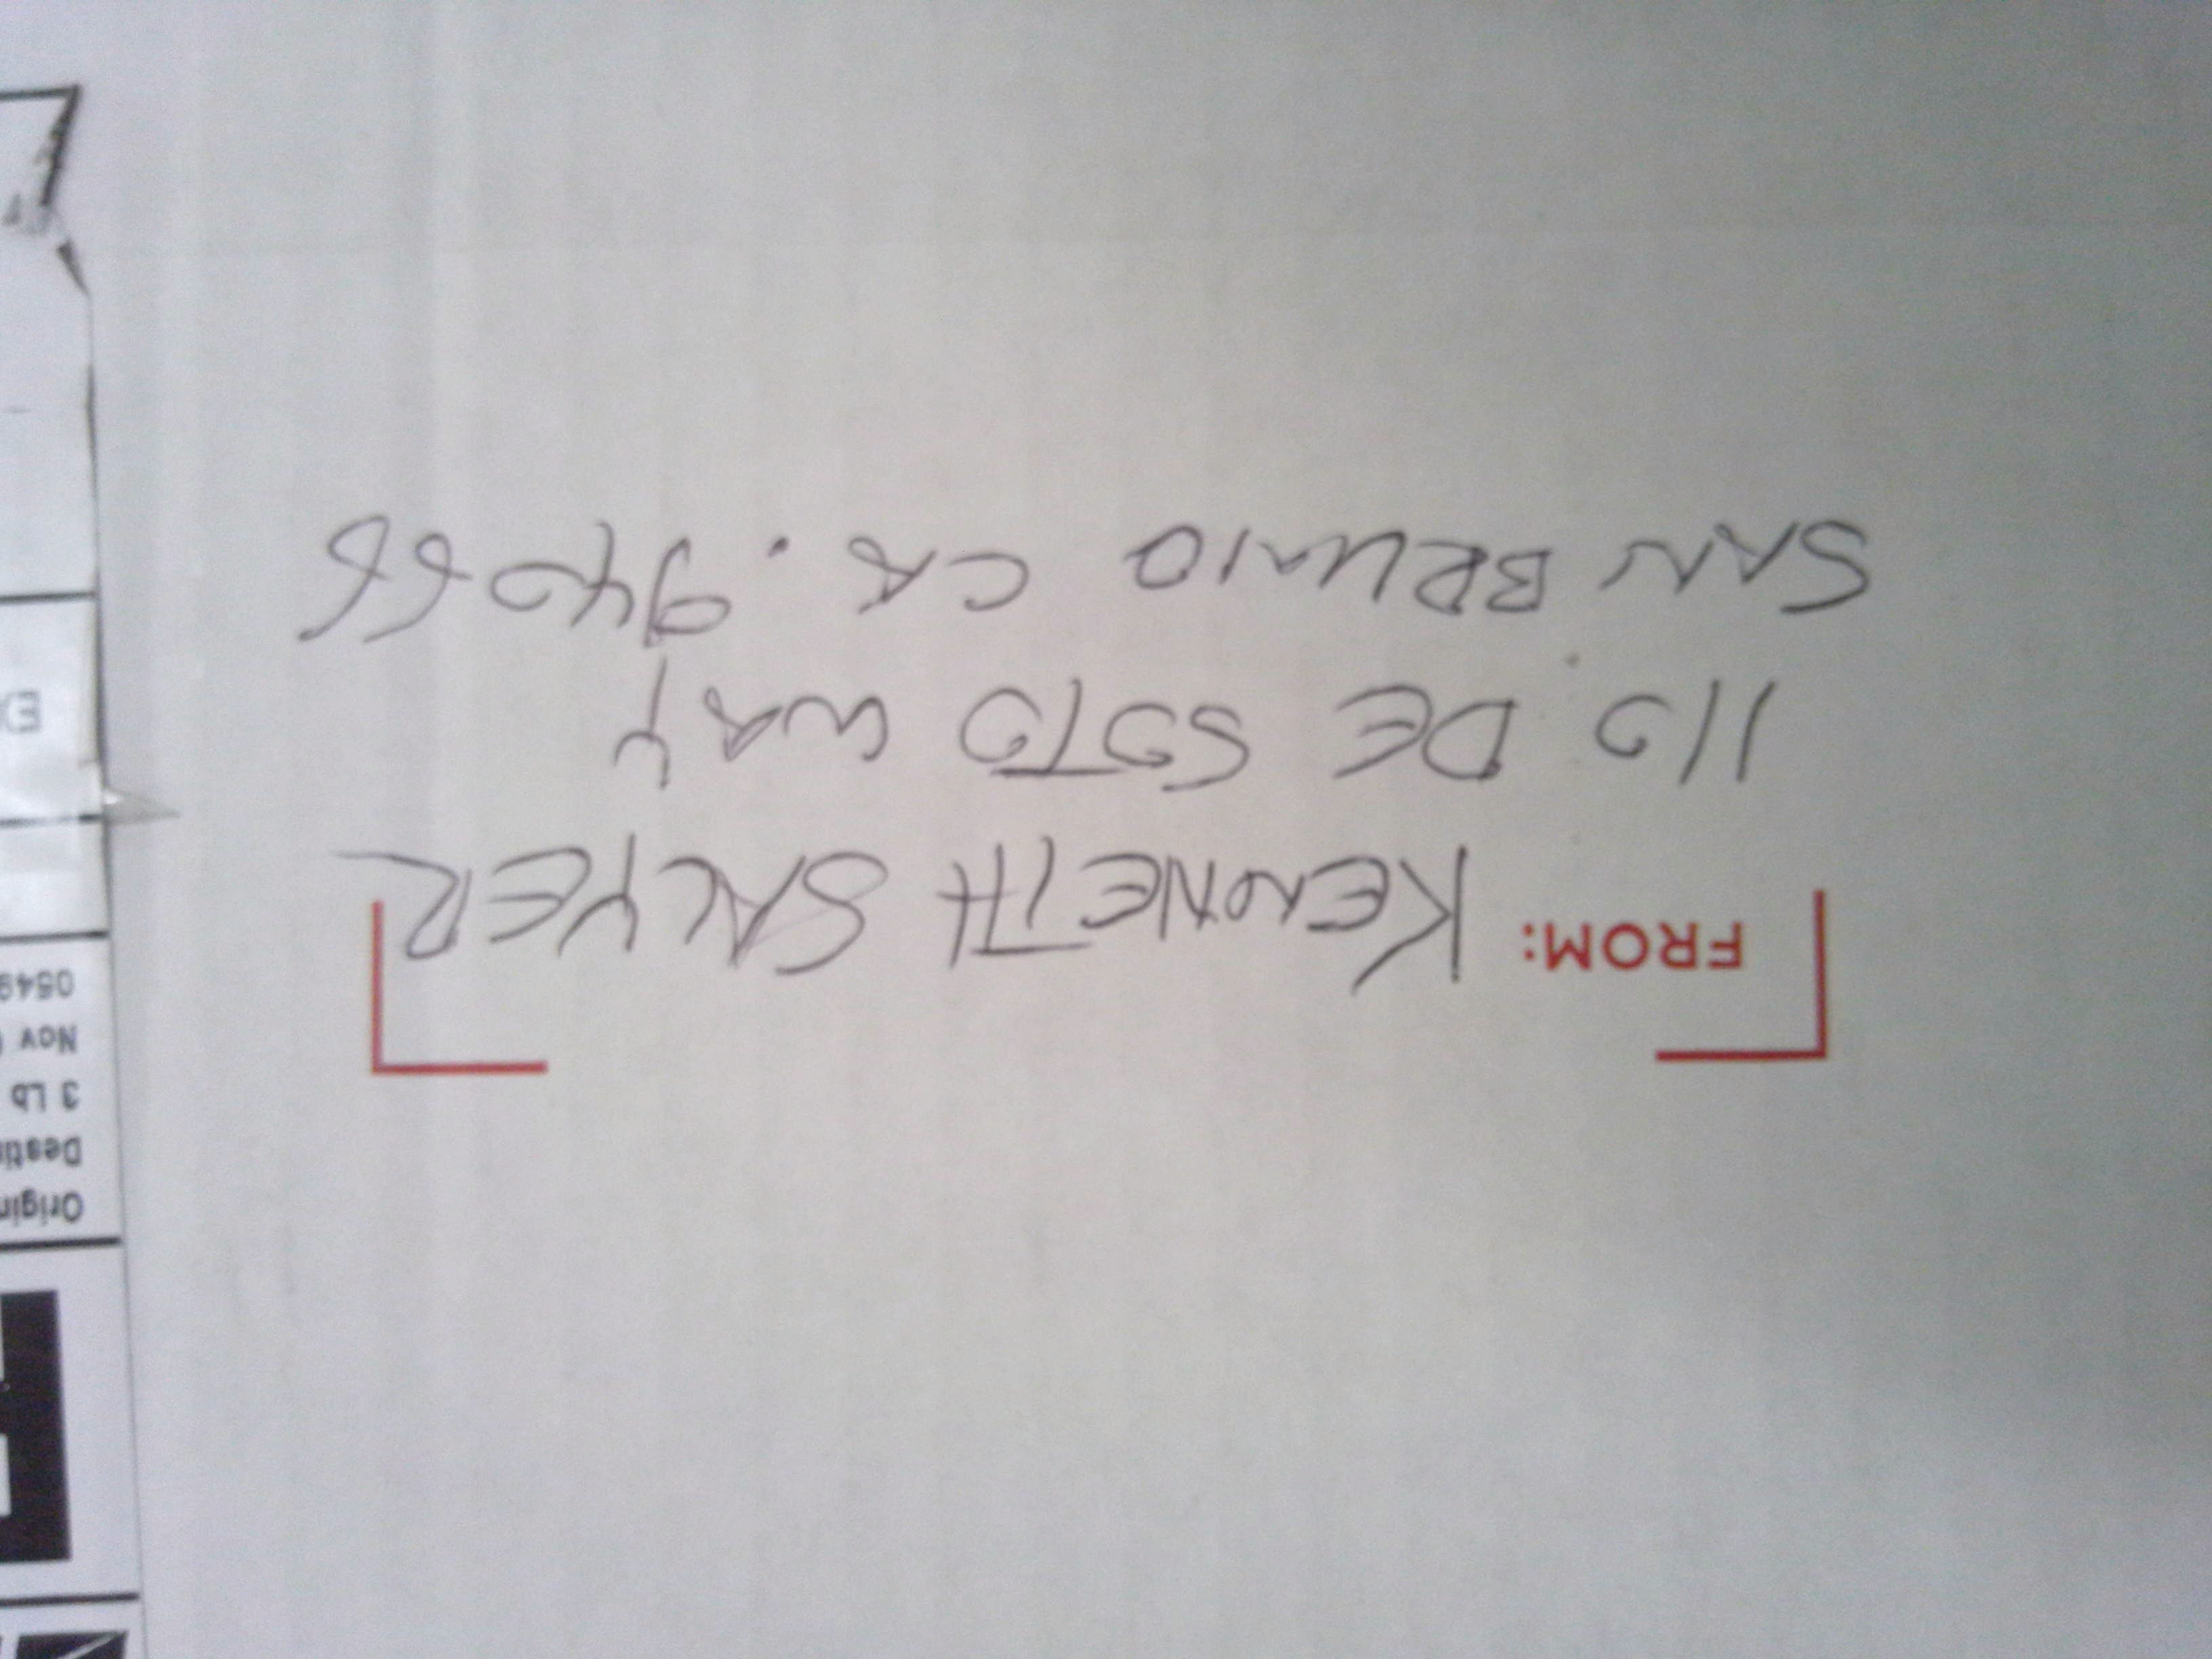 FROM: KENNETH SALYER
110 DE SOTO WAY
SAN BRUNO CA. 94066
Origin
Destin
3 Lb
Nov
0549